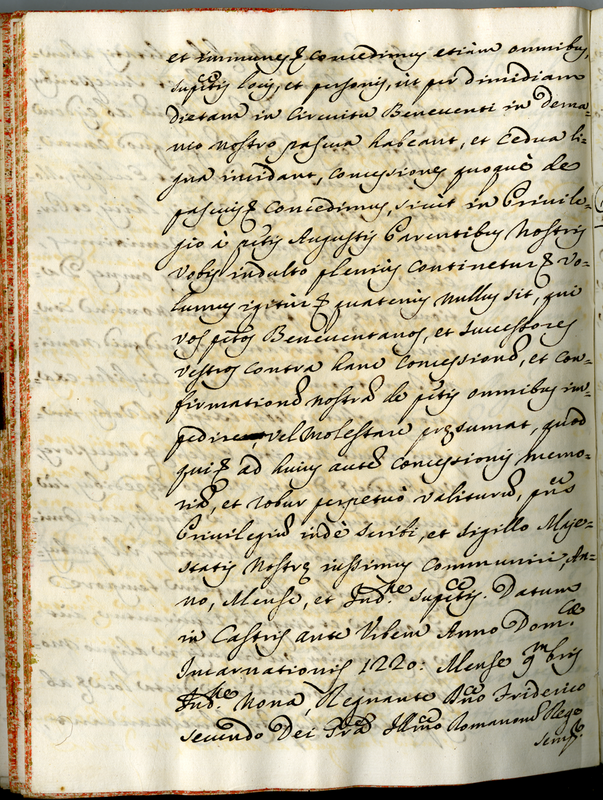 et immunes; Concedimus etiam omnibus
sup.tis locis, et personis, ut per dimidiam
dietam in Circuitu Beneventi in dema=
nio nostro pascua habeant, et Cedua li=
gna incidant, concessiones quoquè de
pascuis Concedimus, sicut in Privile=
gio à p̃tis Augustis Parentibus Nostris
Vobis indulto plenius Continetur; Vo=
lumus igitur quatenus nullus sit, qui
vos p̃tos Beneventanos, et successores
vestros contra hanc Concession̄, et con=
firmation̄ nostrā de p̃tis omnibus im=
pedire vel molestare pręsumat, quod
qui ad huius autē Concessionis memo=
riā, et robur perpetuò valiturū, p̃ns
Privilegiū indè scribi, et sigillo Maje=
statis Nostrę iussimus Communiri, An=
no, Mense, et Ind.ne sup.tis. Datum
in Castris ante Urbem Anno Dom.cæ
Incarnationis 1220: Mense 9mbris
Ind.ne Nona, Regnante Dño Friderico
secundo Dei Grã Illmo Romanorū Rege
semp.